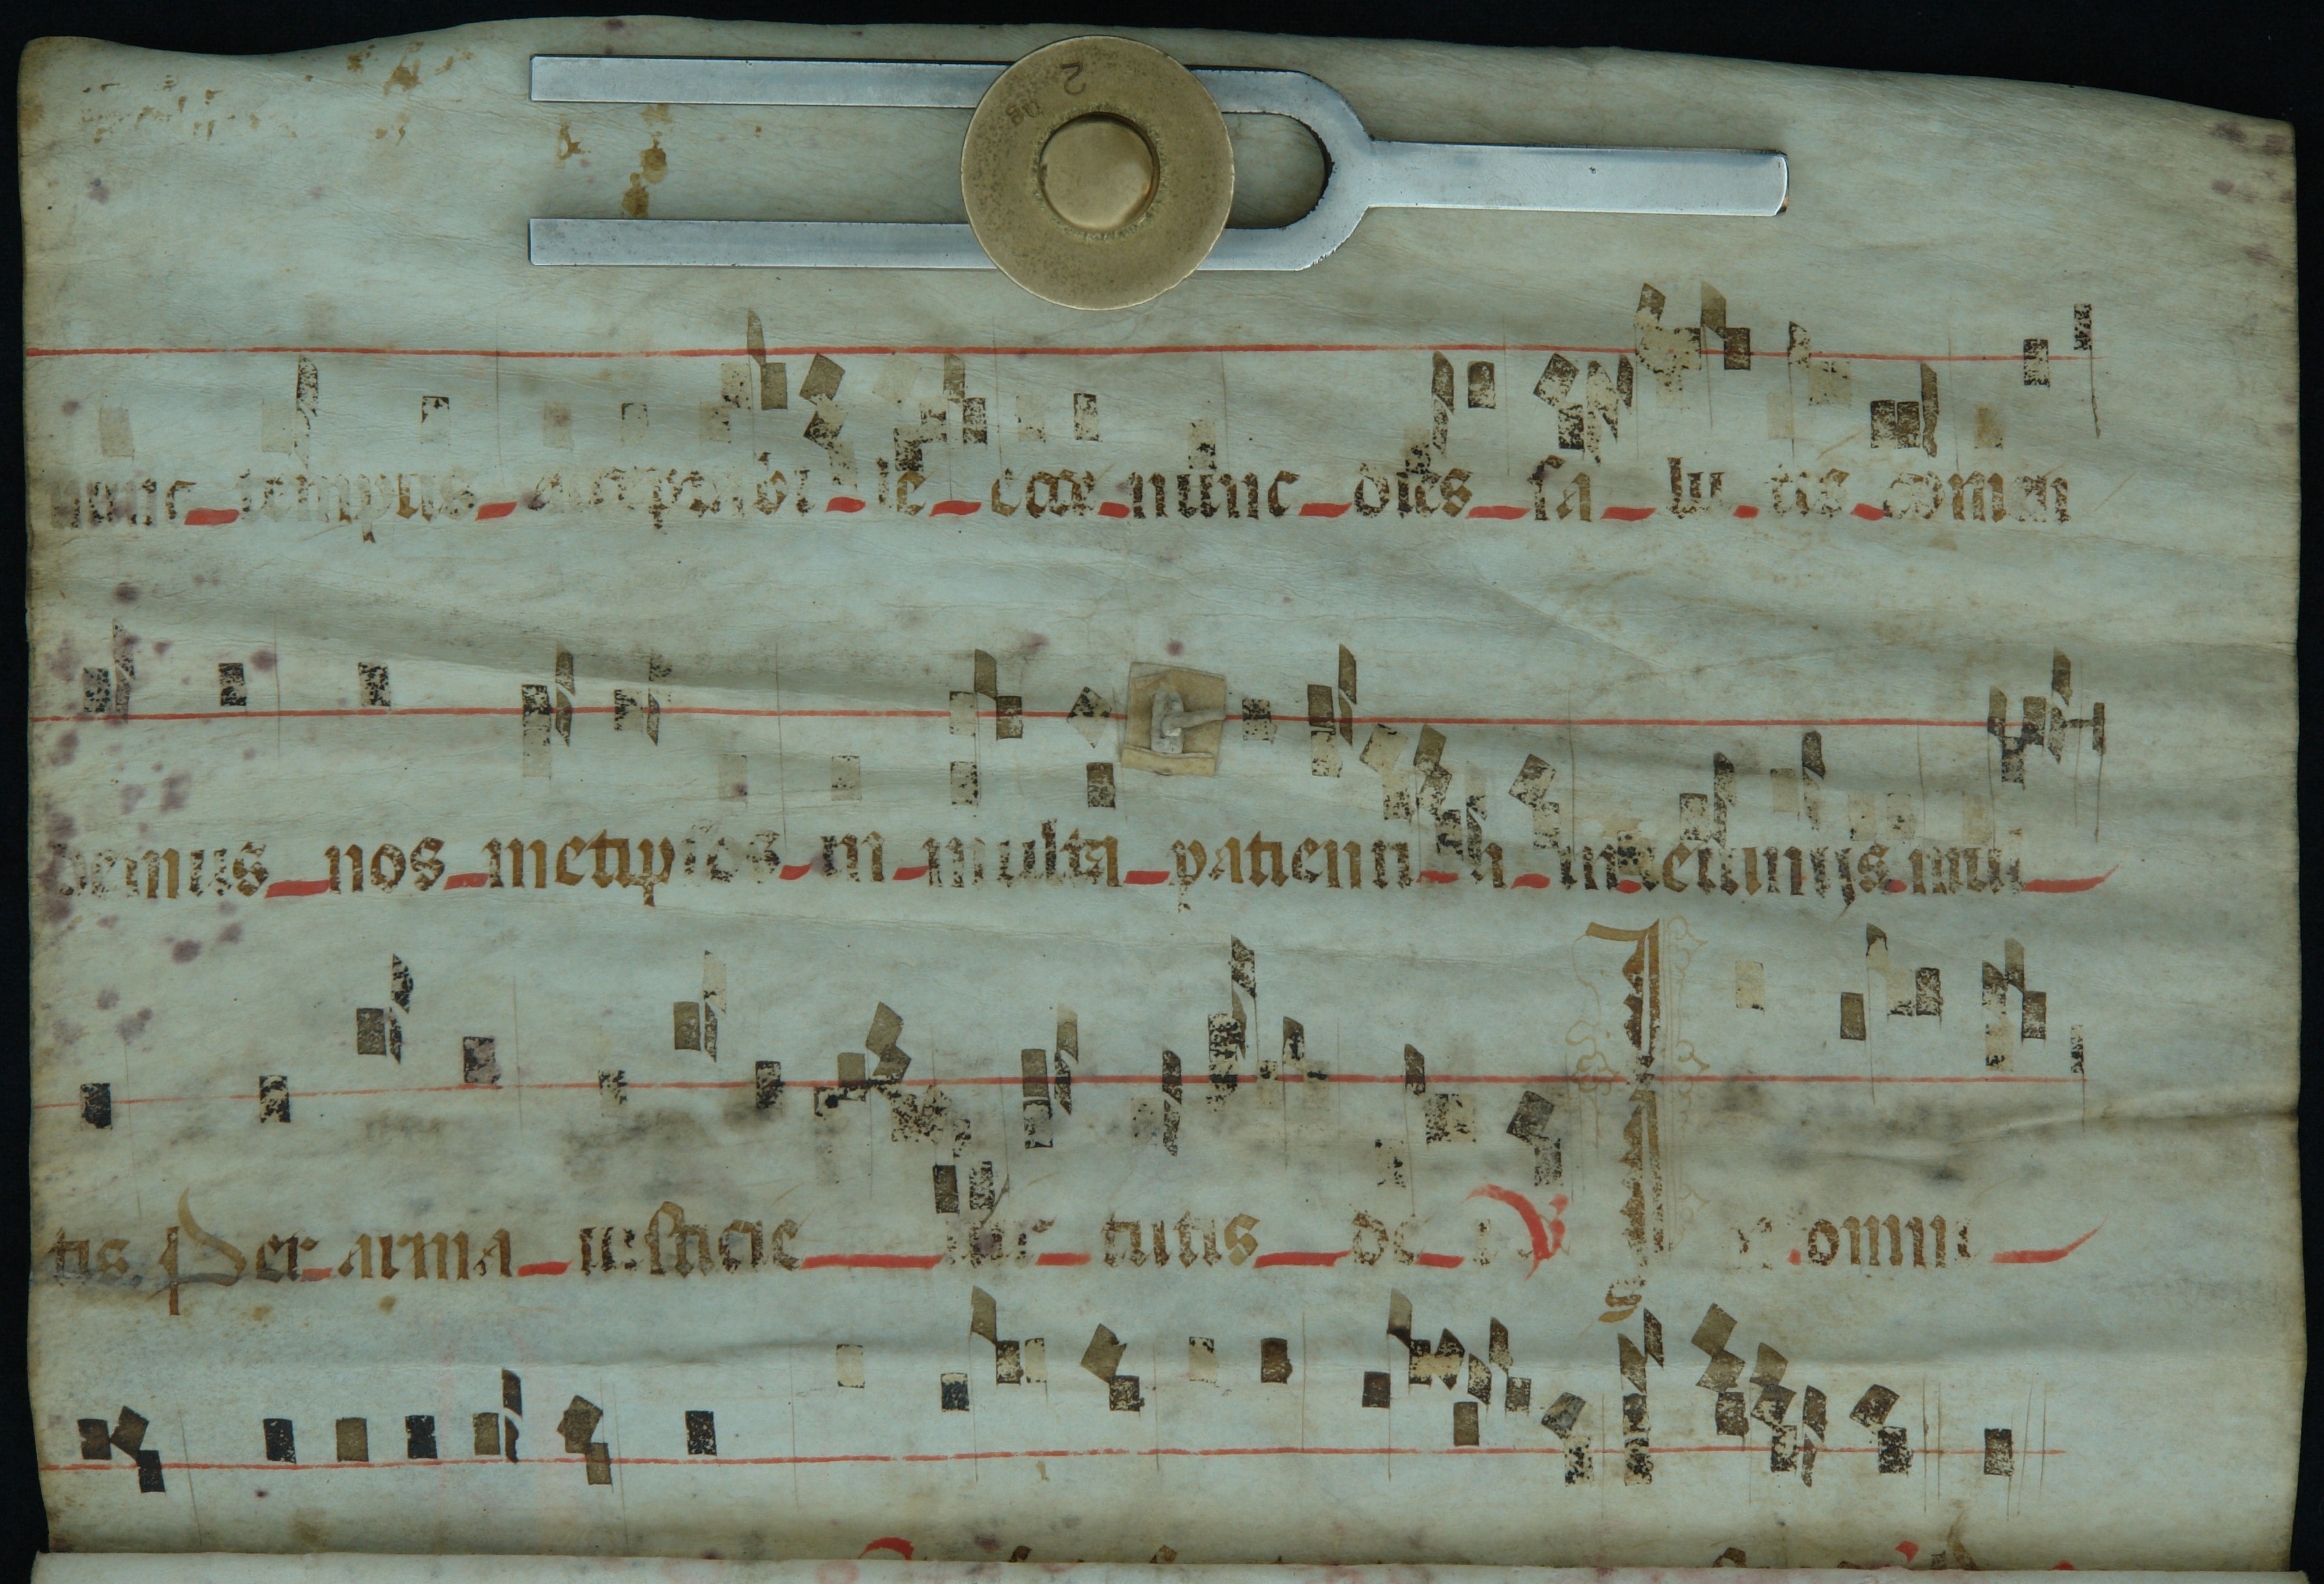 tempus acceptabi le ecce nunc dies sa lu tis commen
demus nos metipsos in multa patienti a in ieiuniis mul
tis. Per arma iusticie vir tutis de i V In omni